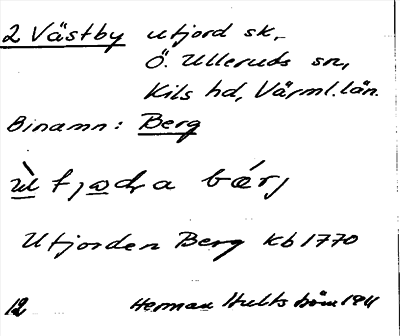 2 Västby utjord sk,
Ö. Ulleruds sn,
Kils hd, Värml. län.
Binamn: Berg
bǽrj
Utjorden Berg Kb 1770
12 Herman Hultström 1911